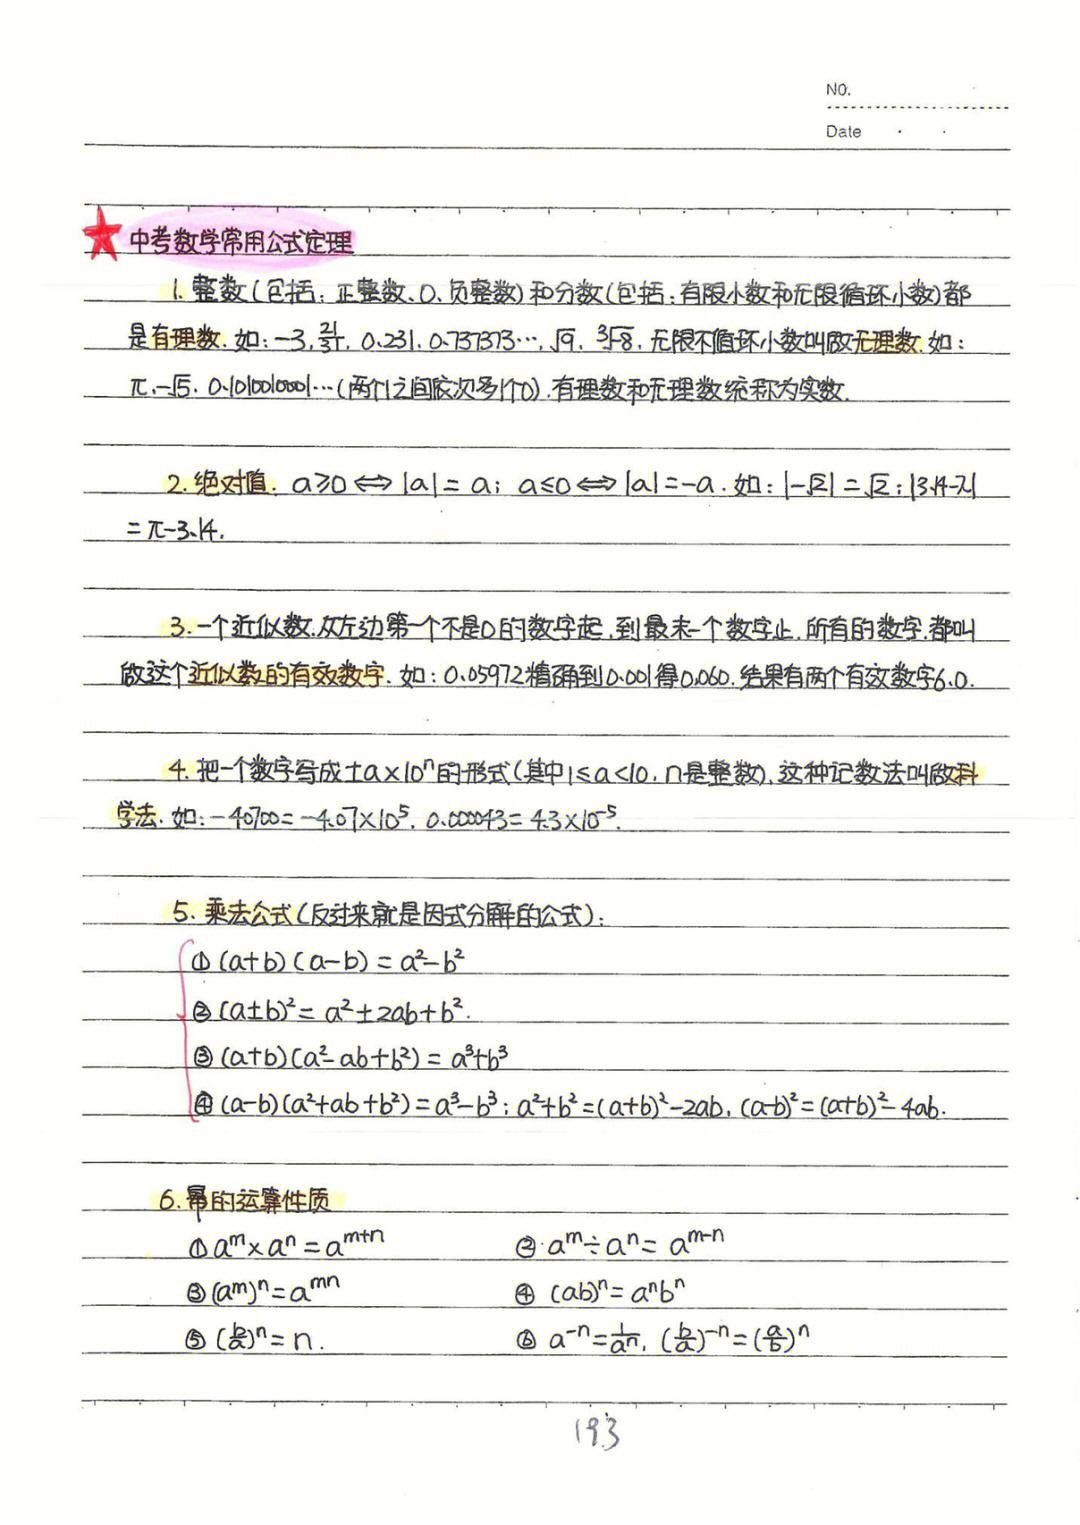 NO.
Date
中考数学常用公式定理
1. 整数(包括: 正整数、0、负整数) 和分数(包括: 有限小数和无限循环小数) 都
是有理数. 如: -3, 21/31, 0.231, 0.737373…, √9, ³√-8. 无限不循环小数叫做无理数. 如:
π, -√5, 0.1010010001…(两个1之间依次多1个0). 有理数和无理数统称为实数.
2. 绝对值: a≥0 ⟺ |a| = a; a≤0 ⟺ |a| = -a. 如: |-√2| = √2; |3.14-π|
= π-3.14.
3. 一个近似数, 从左边第一个不是0的数字起, 到最末一个数字止, 所有的数字, 都叫
做这个近似数的有效数字. 如: 0.05972精确到0.001得0.060, 结果有两个有效数字6.0.
4. 把一个数字写成±a×10ⁿ的形式(其中1≤a<10, n是整数), 这种记数法叫做科
学法. 如: -40700 = -4.07×10⁵, 0.000043 = 4.3×10⁻⁵.
5. 乘法公式(反过来就是因式分解的公式):
① (a+b)(a-b) = a²-b²
② (a±b)² = a²±2ab+b².
③ (a+b)(a²-ab+b²) = a³+b³
④ (a-b)(a²+ab+b²) = a³-b³; a²+b² = (a+b)²-2ab, (a-b)² = (a+b)²-4ab.
6. 幂的运算性质
① aᵐ×aⁿ = aᵐ⁺ⁿ ② aᵐ÷aⁿ = aᵐ⁻ⁿ
③ (aᵐ)ⁿ = aᵐⁿ ④ (ab)ⁿ = aⁿbⁿ
⑤ (b/a)ⁿ = n. ⑥ a⁻ⁿ = 1/aⁿ, (b/a)⁻ⁿ = (a/b)ⁿ
193